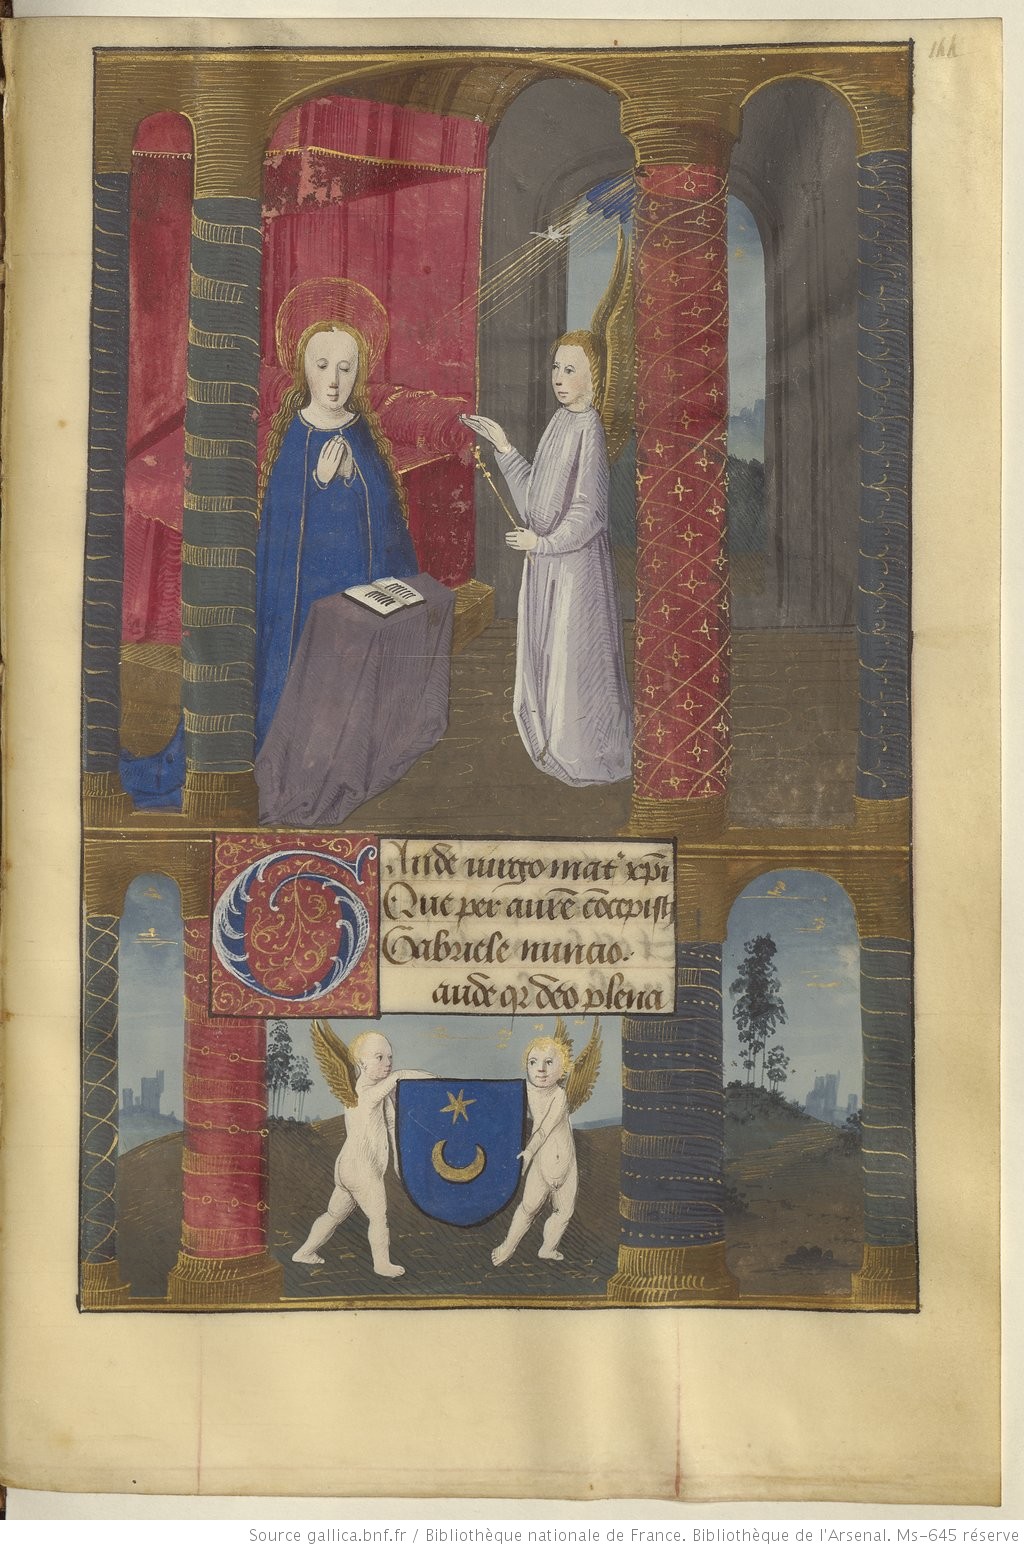 144
Gaude uirgo mat' xpi
Que per aurē cōcepisti
Gabriele nuncio.
aude qr deo plena
Source gallica.bnf.fr / Bibliothèque nationale de France. Bibliothèque de l'Arsenal. Ms-645 réserve